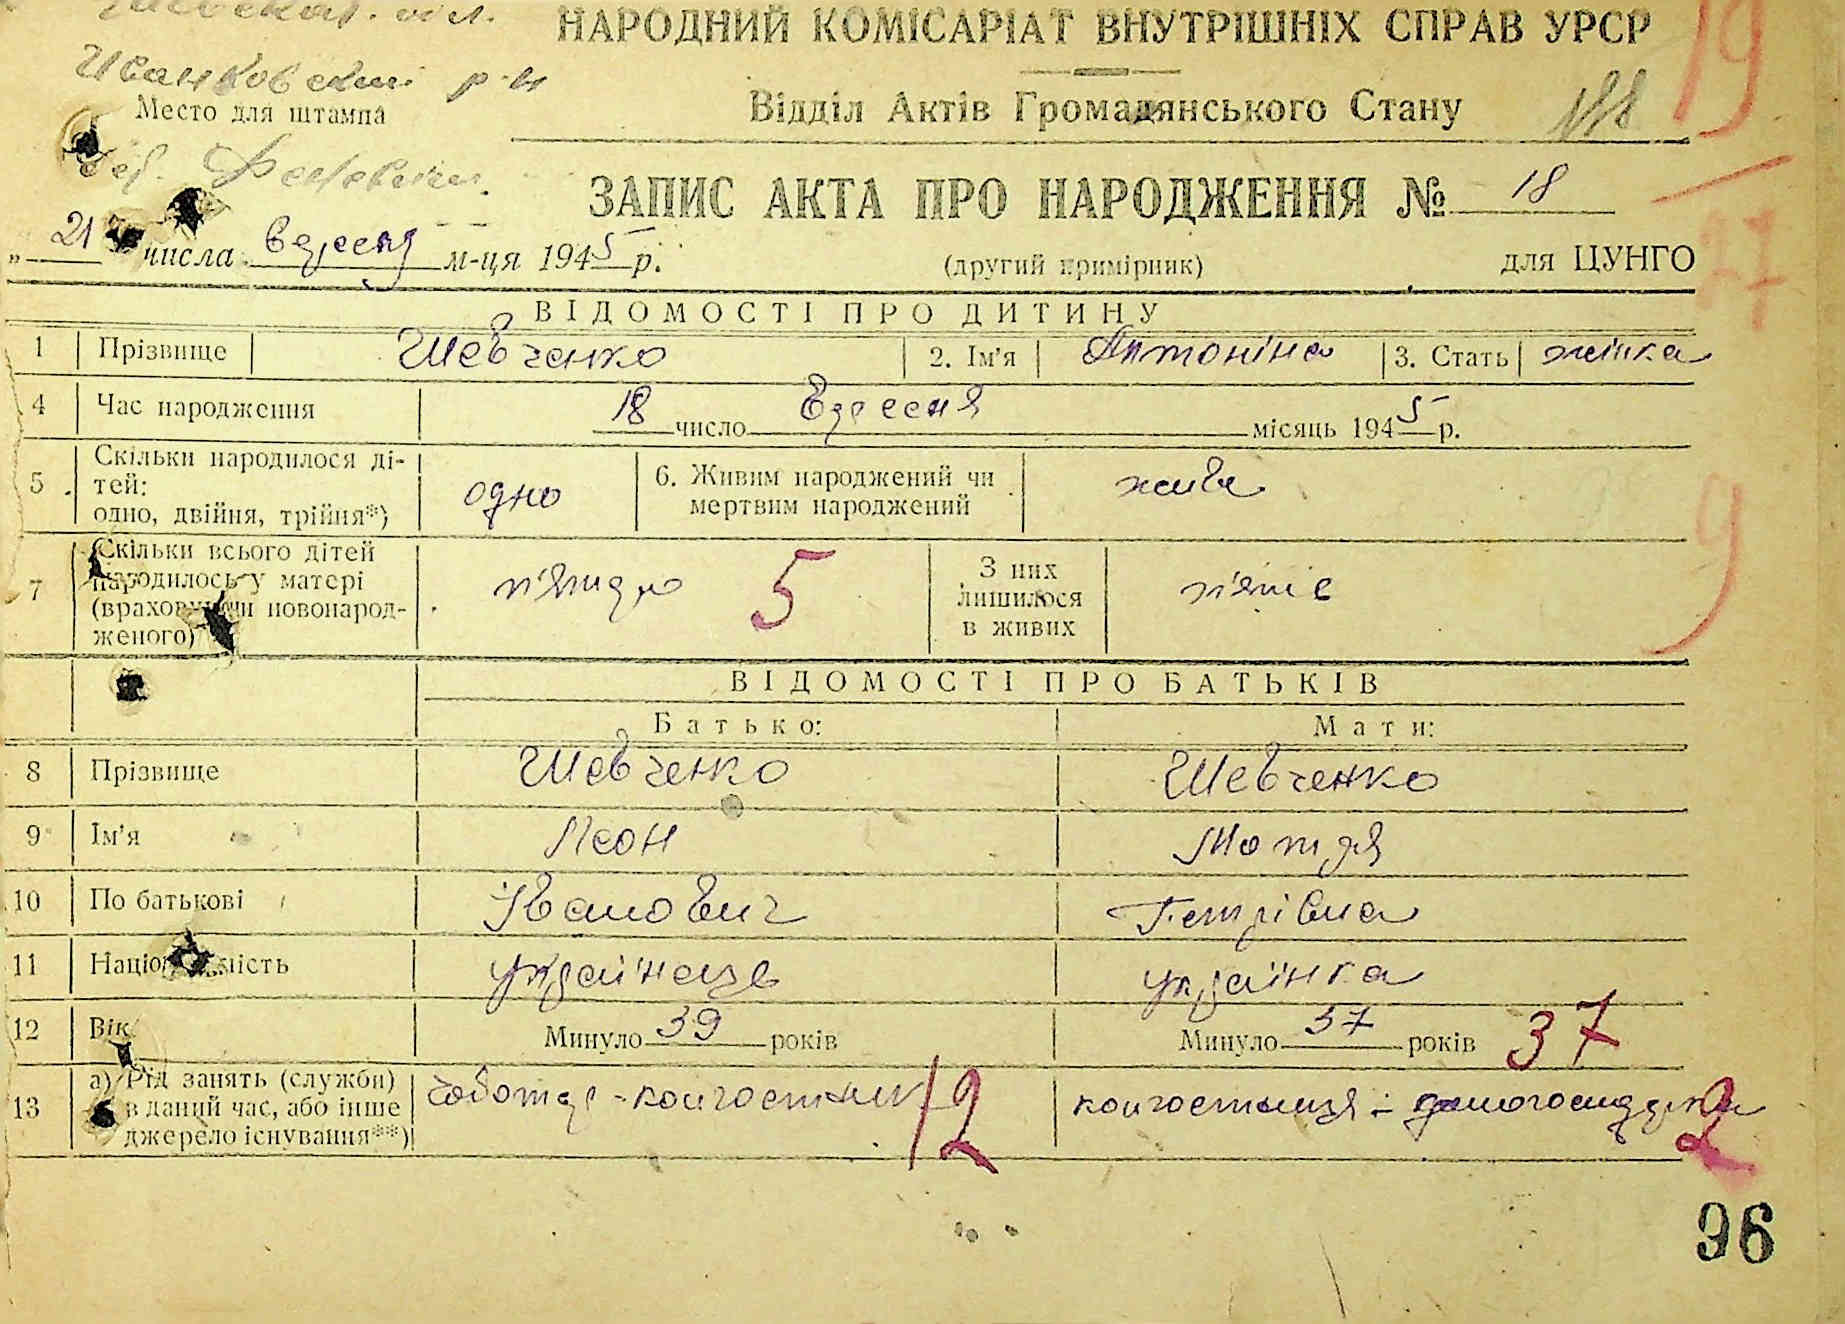 обл.
Иванковский р-н
Место для штампа
НАРОДНИЙ КОМІСАРІАТ ВНУТРІШНІХ СПРАВ УРСР
Відділ Актів Громадянського Стану
19
ЗАПИС АКТА ПРО НАРОДЖЕННЯ № 18
27
„21" числа вересня м-ця 1945 р.
(другий примірник)
для ЦУНГО
ВІДОМОСТІ ПРО ДИТИНУ
1 Прізвище Шевченко 2. Ім'я Антоніна 3. Стать жінка
4 Час народження 18 число вересня місяць 1945 р.
5 Скільки народилося ді-
тей:
одно, двійня, трійня*) одно
6. Живим народжений чи
мертвим народжений живе
9
7 Скільки всього дітей
народилось у матері
(враховуючи новонарод-
женого) п'ятеро 5
З них
лишилося
в живих п'яте
ВІДОМОСТІ ПРО БАТЬКІВ
Батько: Мати:
8 Прізвище Шевченко Шевченко
9 Ім'я Леон Мотря
10 По батькові Іванович Петрівна
11 Національність українець українка
12 Вік Минуло 39 років Минуло 37 років 37
13 а) Рід занять (служби)
в даний час, або інше
джерело існування**)
чоботар-колгоспник 12
колгоспниця - домогосподарка 2
96